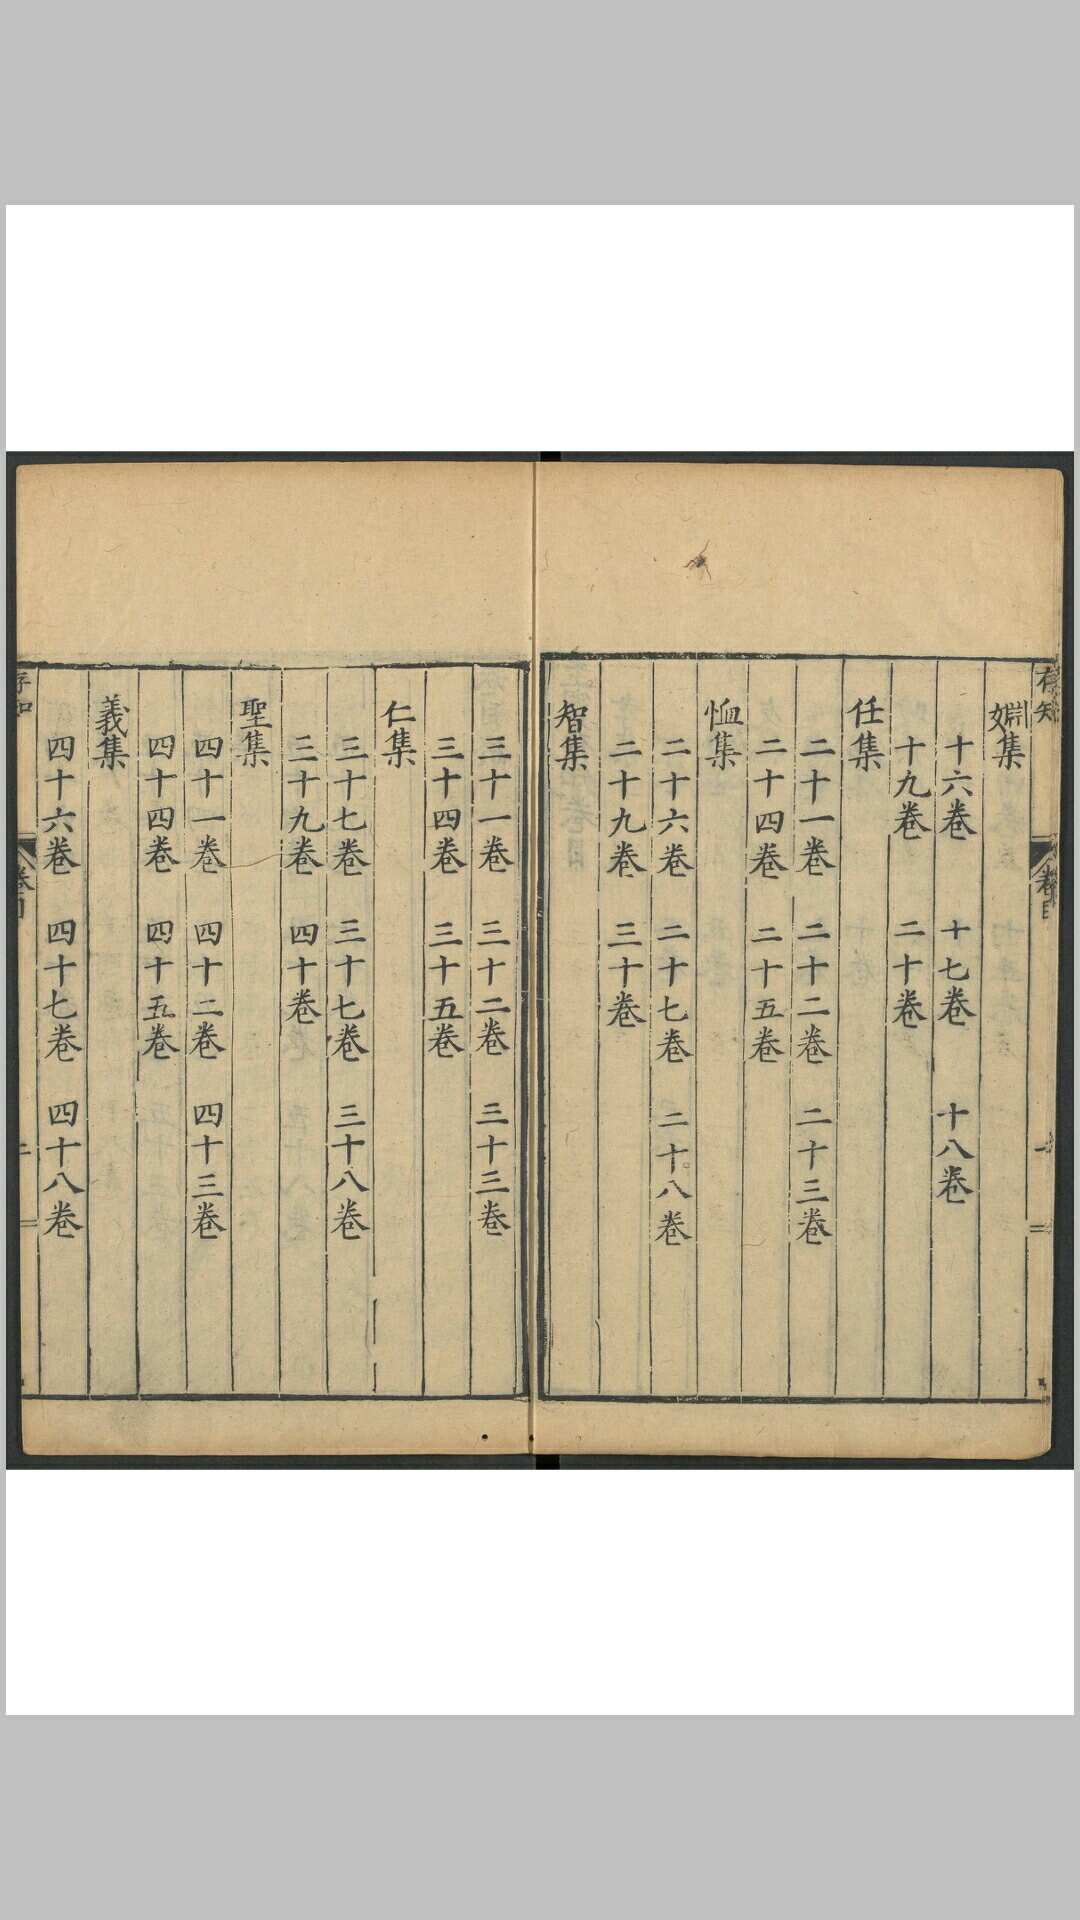 卷目
婣集
十六卷 十七卷 十八卷
十九卷 二十卷
任集
二十一卷 二十二卷 二十三卷
二十四卷 二十五卷
恤集
二十六卷 二十七卷 二十八卷
二十九卷 三十卷
智集
三十一卷 三十二卷 三十三卷
三十四卷 三十五卷
仁集
三十七卷 三十七卷 三十八卷
三十九卷 四十卷
聖集
四十一卷 四十二卷 四十三卷
四十四卷 四十五卷
義集
四十六卷 四十七卷 四十八卷